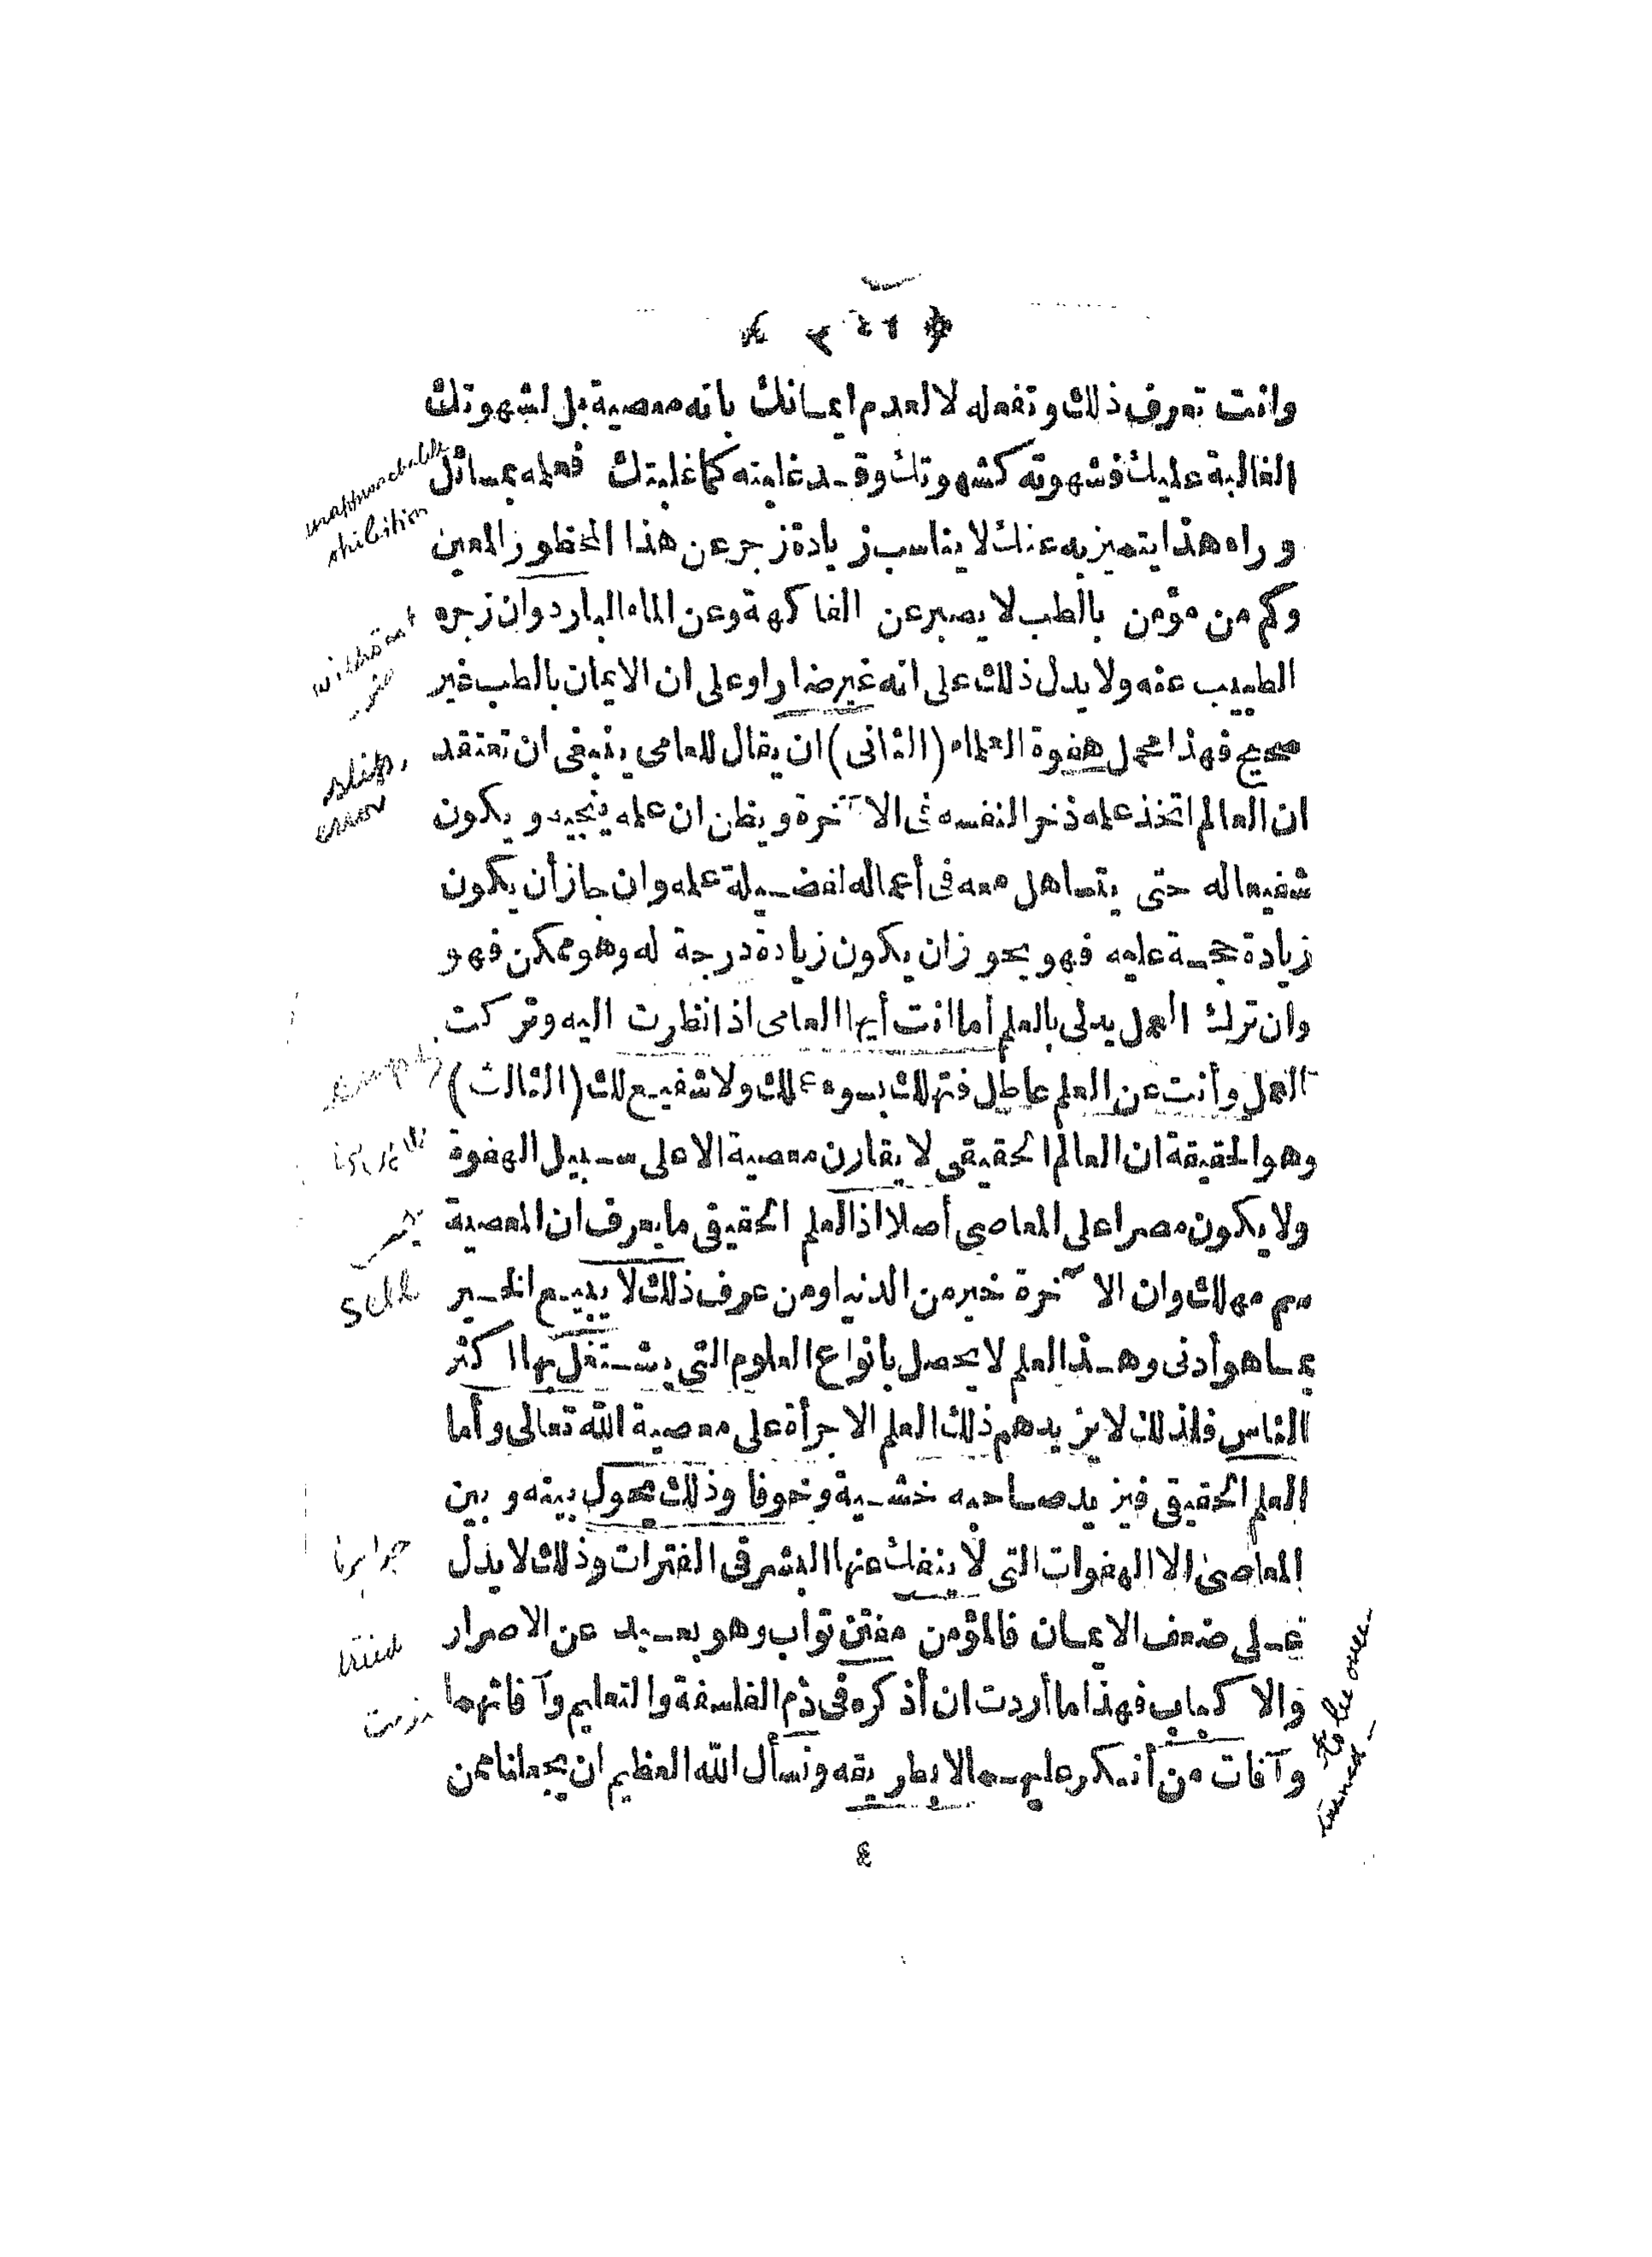 وانت تعرف ذلك وتفعله لا لعدم ايمانك بانه معصية بل لشهوتك
الغالبة عليك فشهوته كشهوتك وقد غلبته كما غلبتك فعلمه بمسائل
وراء هذا يتميز به عنك لا يناسب زيادة زجر عن هذا المحظور المعين
وكم من مؤمن بالطب لا يصبر عن الفاكهة وعن الماء البارد وان زجره
الطبيب عنه ولا يدل ذلك على انه غير ضار او على ان الايمان بالطب غير
صحيح فهذا محمل هفوة العلماء (الثانى) ان يقال للعامى ينبغى ان تعتقد
ان العالم اتخذ علمه ذخرا لنفسه فى الآخرة ويظن ان علمه ينجيه ويكون
شفيعا له حتى يتساهل معه فى أعماله لفضيلة علمه وان جاز أن يكون
زيادة حجة عليه فهو يجوز ان يكون زيادة درجة له وهو ممكن فهو
وان ترك العمل يدلى بالعلم أما انت أيها العامى اذا نظرت اليه وتركت
العمل وأنت عن العلم عاطل فتهلك بسوء عملك ولا شفيع لك (الثالث)
وهو الحقيقة ان العالم الحقيقى لا يقارن معصية الا على سبيل الهفوة
ولا يكون مصرا على المعاصى أصلا اذ العلم الحقيقى ما يعرف ان المعصية
سم مهلك وان الآخرة خير من الدنيا ومن عرف ذلك لا يبيع الخير
بما هو أدنى وهذا العلم لا يحصل بانواع العلوم التى يشتغل بها اكثر
الناس فلذلك لا يزيدهم ذلك العلم الا جرأة على معصية الله تعالى وأما
العلم الحقيقى فيزيد صاحبه خشية وخوفا وذلك يحول بينه وبين
المعاصى الا الهفوات التى لا ينفك عنها البشر فى الفترات وذلك لا يدل
على ضعف الايمان فالمؤمن مفتن تواب وهو بعيد عن الاصرار
والاكباب فهذا ما أردت ان أذكره فى ذم الفلسفة والتعليم وآفاتهما
وآفات من أنكر عليهما لا بطريقه ونسأل الله العظيم ان يجعلنا ممن
without
slip,
error
sell
tried